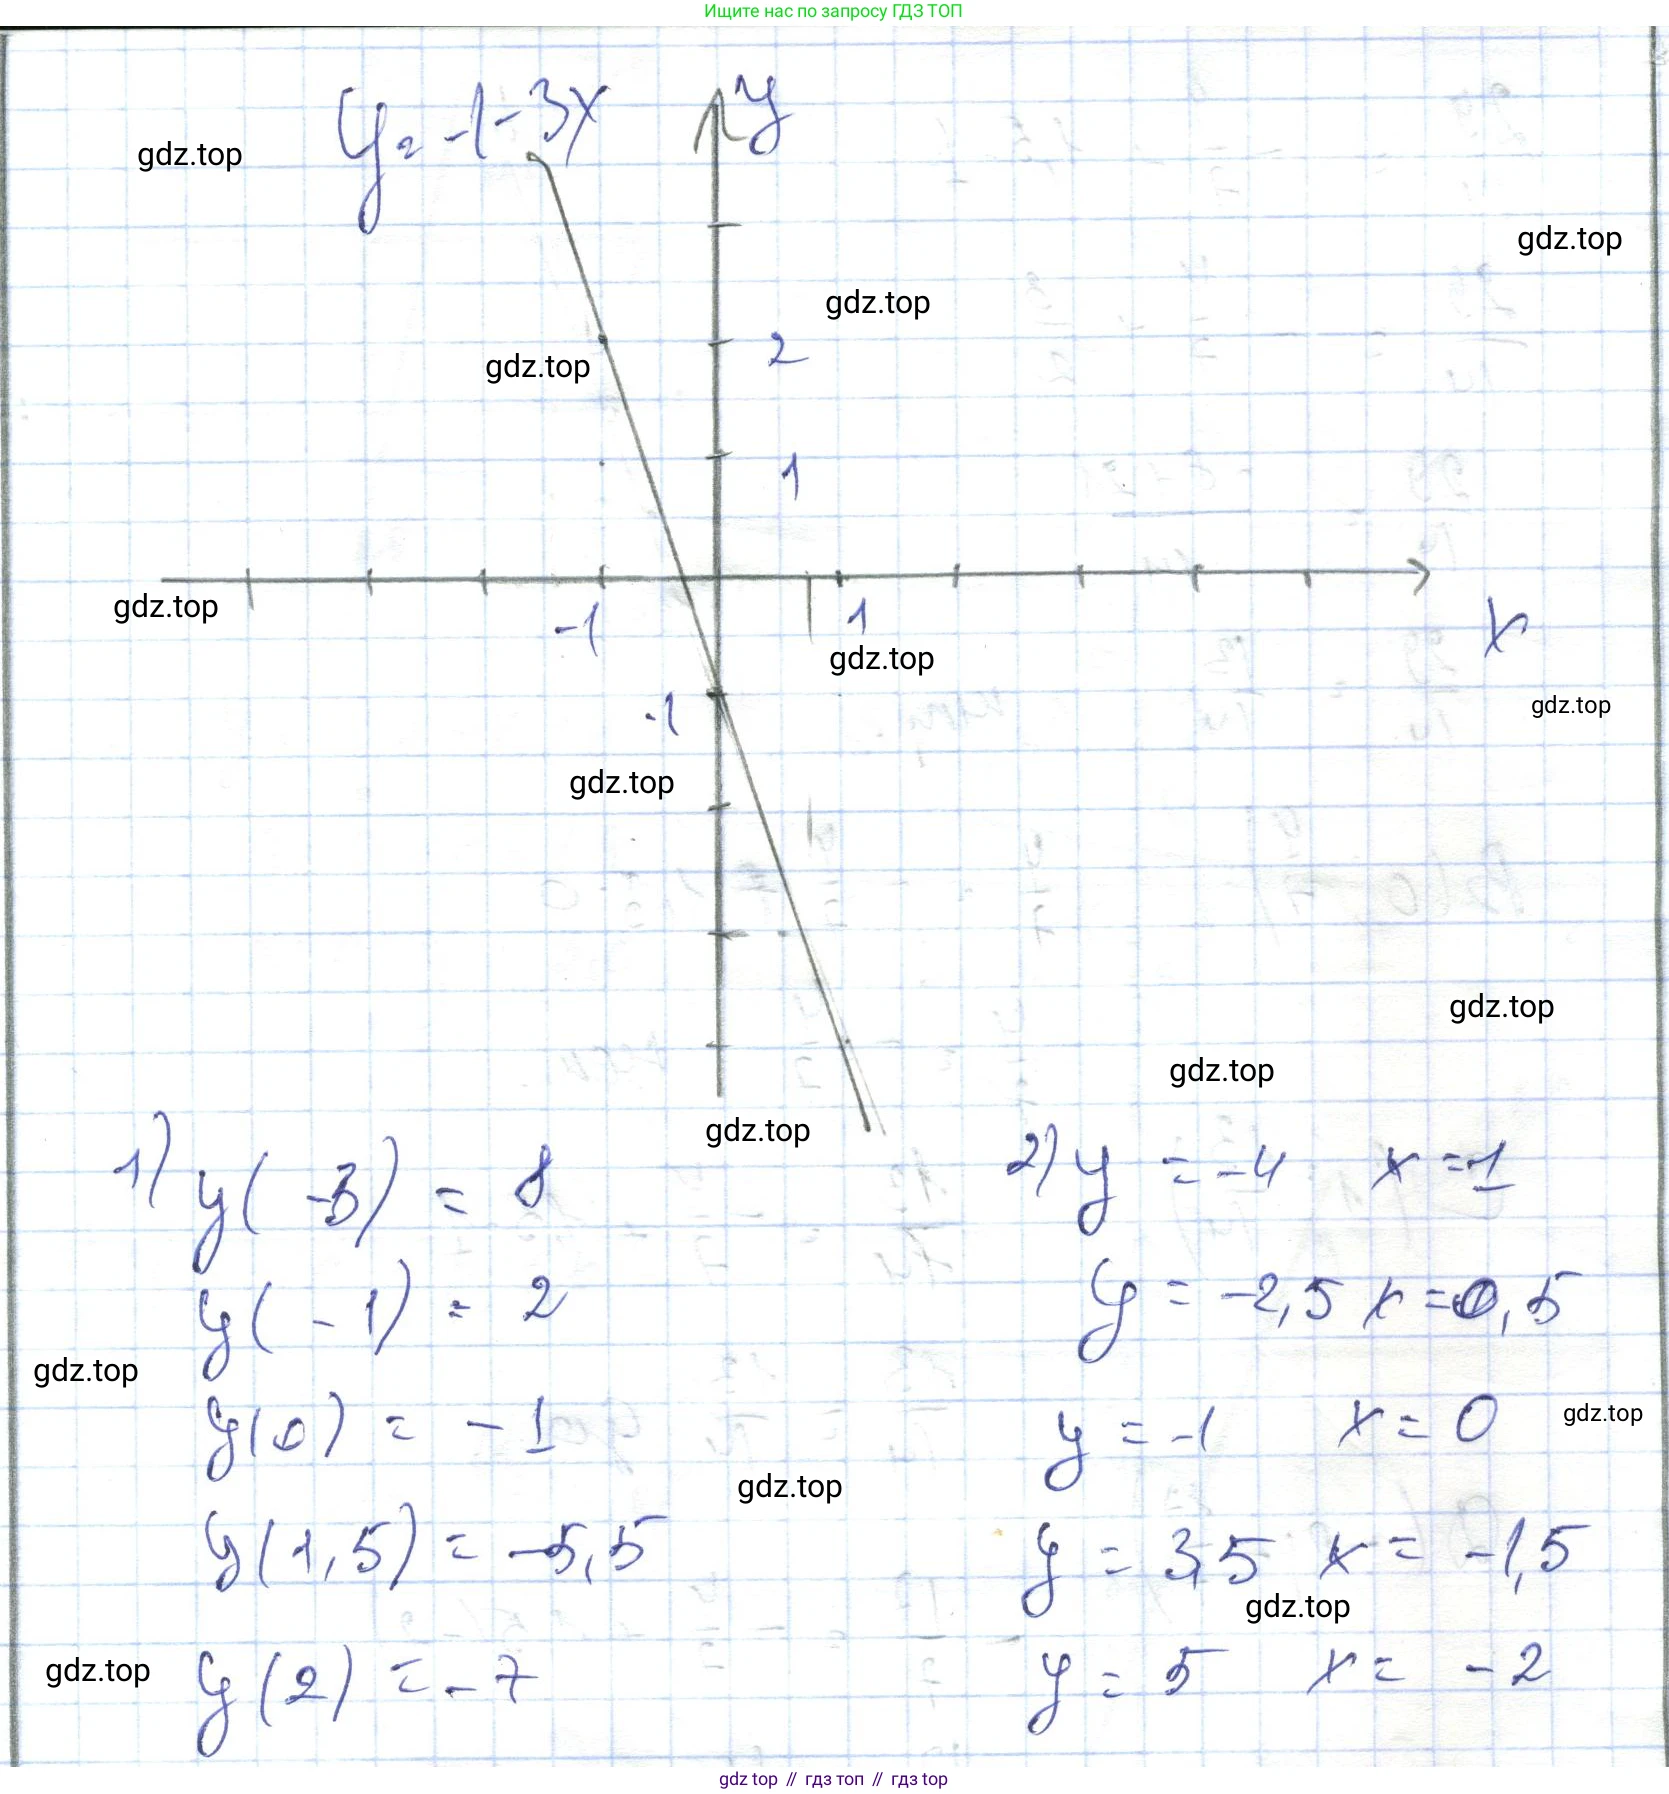 Ищите нас по запросу ГДЗ ТОП
y = -1-3x
y
gdz.top
gdz.top
gdz.top
2
gdz.top
1
gdz.top
-1
1
x
gdz.top
gdz.top
-1
gdz.top
gdz.top
gdz.top
gdz.top
1) y(-3) = 8
2) y = -4 x = 1
y(-1) = 2
y = -2,5 x = 0,5
gdz.top
y(0) = -1
y = -1 x = 0
gdz.top
gdz.top
y(1,5) = -5,5
y = 3,5 x = -1,5
gdz.top
gdz.top
y(2) = -7
y = 5 x = -2
gdz top // гдз топ // гдз top